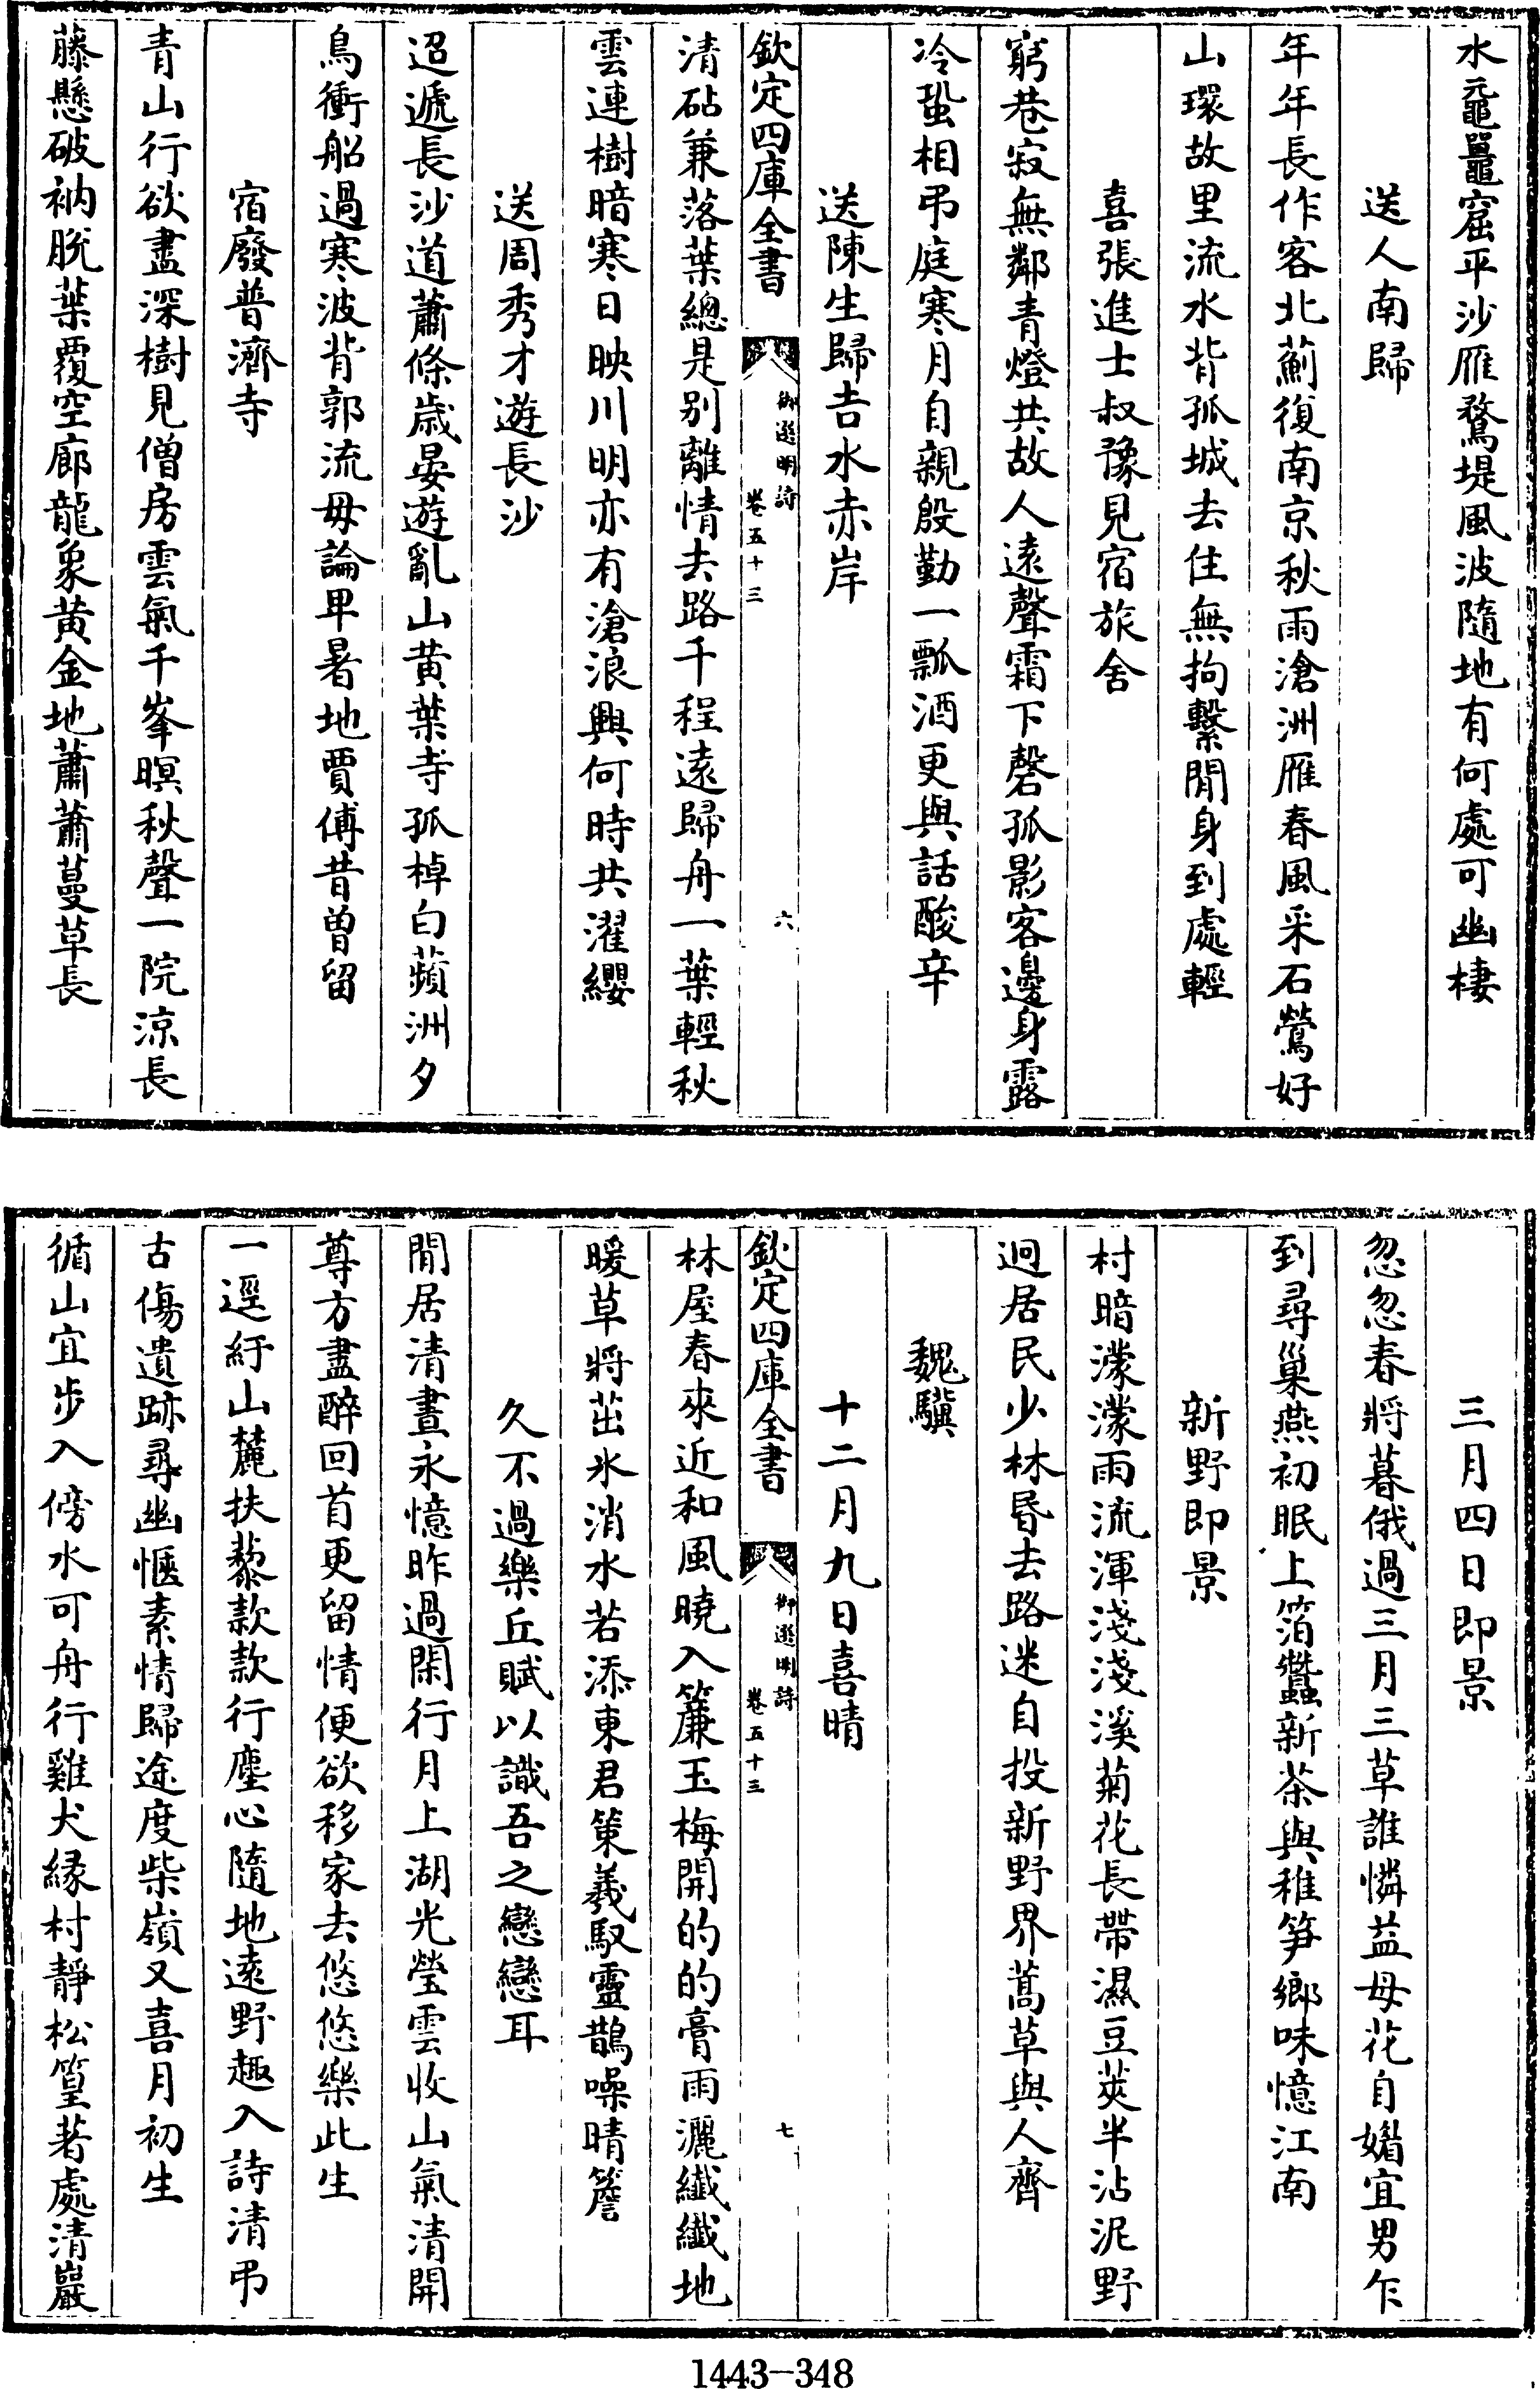 水黿鼉窟平沙雁鶩堤風波隨地有何處可幽棲
送人南歸
年年長作客北薊復南京秋雨滄洲雁春風采石鶯好
山環故里流水背孤城去住無拘繫閒身到處輕
喜張進士叔豫見宿旅舍
窮巷寂無鄰青燈共故人遠聲霜下磬孤影客邊身露
冷蛩相弔庭寒月自親殷勤一瓢酒更與話酸辛
送陳生歸吉水赤岸
欽定四庫全書
御選明詩
卷五十三
六
清砧兼落葉總是别離情去路千程遠歸舟一葉輕秋
雲連樹暗寒日映川明亦有滄浪興何時共濯纓
送周秀才遊長沙
迢遞長沙道蕭條歲晏遊亂山黄葉寺孤棹白蘋洲夕
鳥衝船過寒波背郭流毋論卑暑地賈傅昔曽留
宿廢普濟寺
青山行欲盡深樹見僧房雲氣千峯暝秋聲一院涼長
藤懸破衲脫葉覆空廊龍象黄金地蕭蕭蔓草長
三月四日即景
忽忽春將暮俄過三月三草誰憐益母花自媚宜男乍
到尋巢燕初眠上箔蠶新茶與稚笋鄉味憶江南
新野即景
村暗濛濛雨流渾淺淺溪菊花長帶濕豆莢半沾泥野
迥居民少林昬去路迷自投新野界蒿草與人齊
魏驥
十二月九日喜晴
欽定四庫全書
御選明詩
卷五十三
七
林屋春來近和風曉入簾玉梅開的的膏雨灑纖纖地
暖草將茁氷消水若添東君策羲馭靈鵲噪晴簷
久不過樂丘賦以識吾之戀戀耳
閒居清晝永憶昨過閑行月上湖光瑩雲收山氣清開
尊方盡醉回首更留情便欲移家去悠悠樂此生
一逕紆山麓扶藜款款行塵心隨地遠野趣入詩清弔
古傷遺跡尋幽愜素情歸途度柴嶺又喜月初生
循山宜步入傍水可舟行雞犬縁村靜松篁著處清巖
1443-348